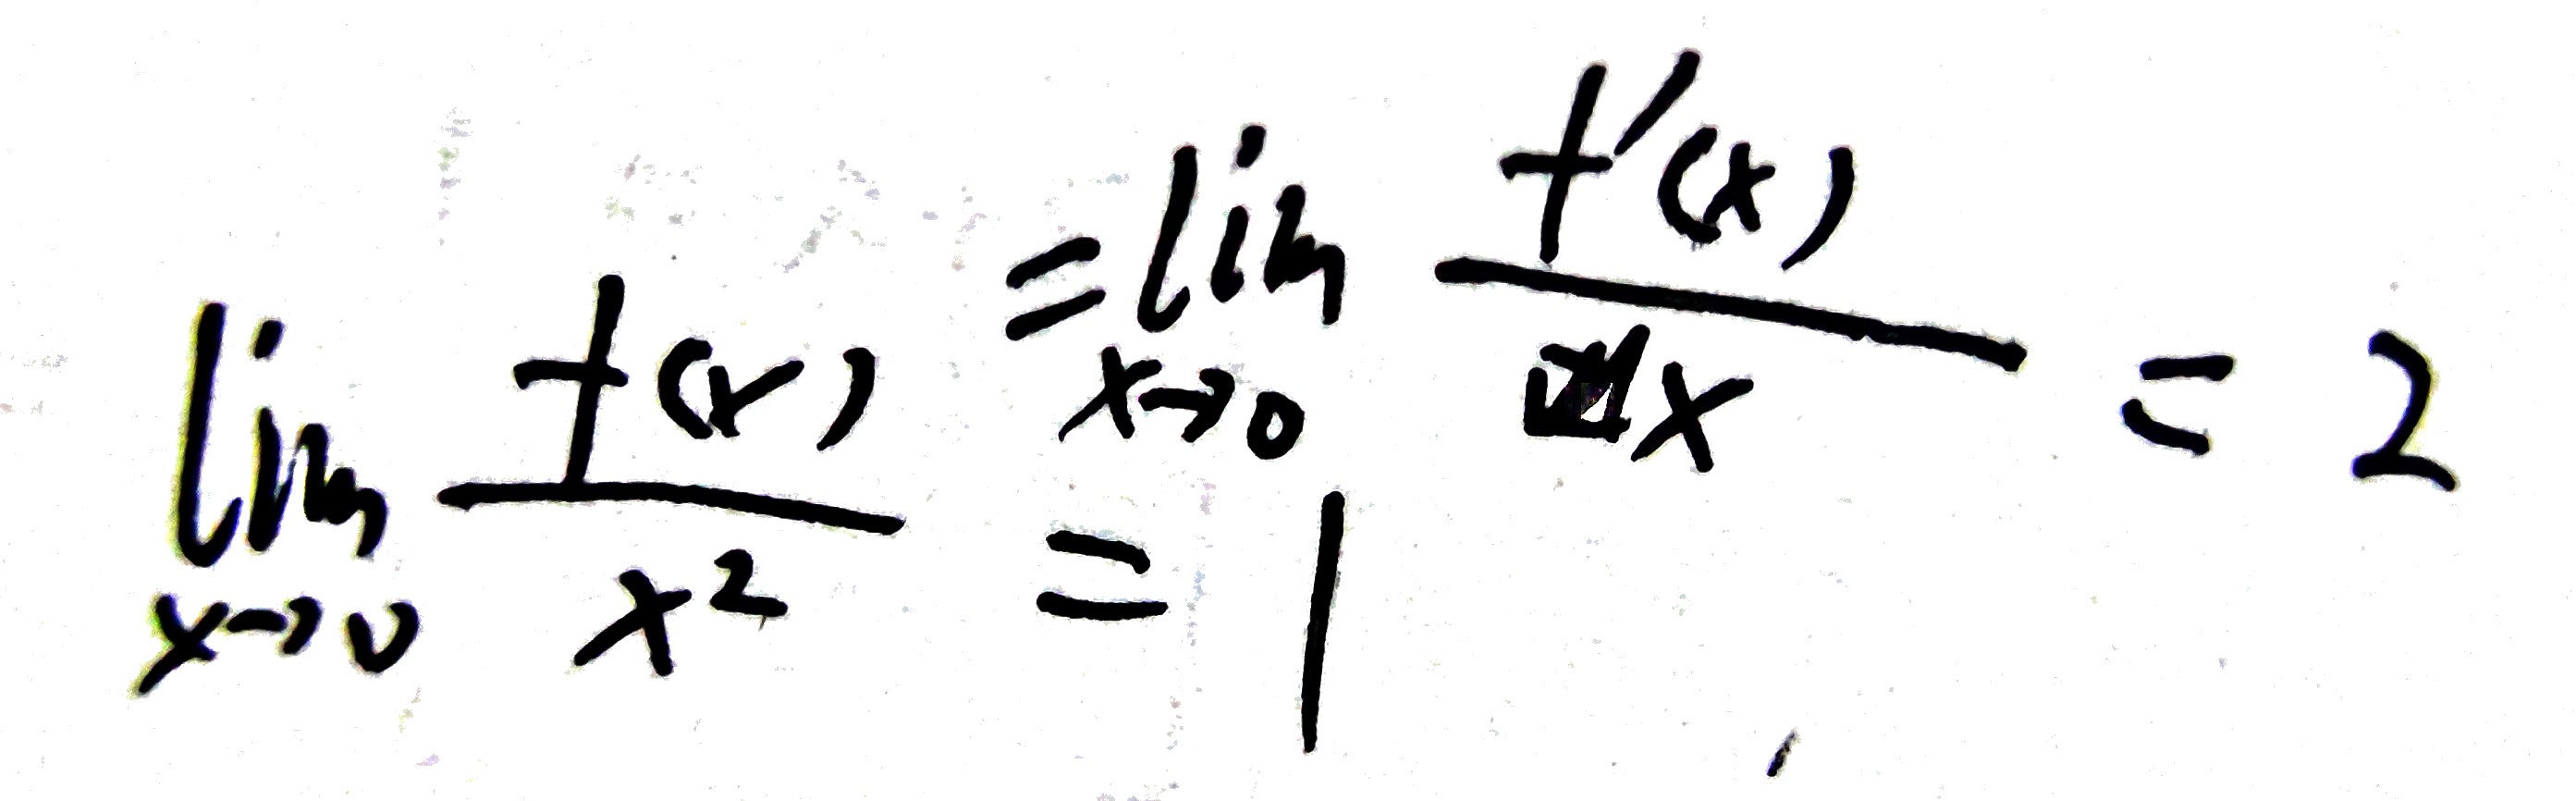 lim x→0 f(x)/x² = lim x→0 f'(x)/x = 2
= 1